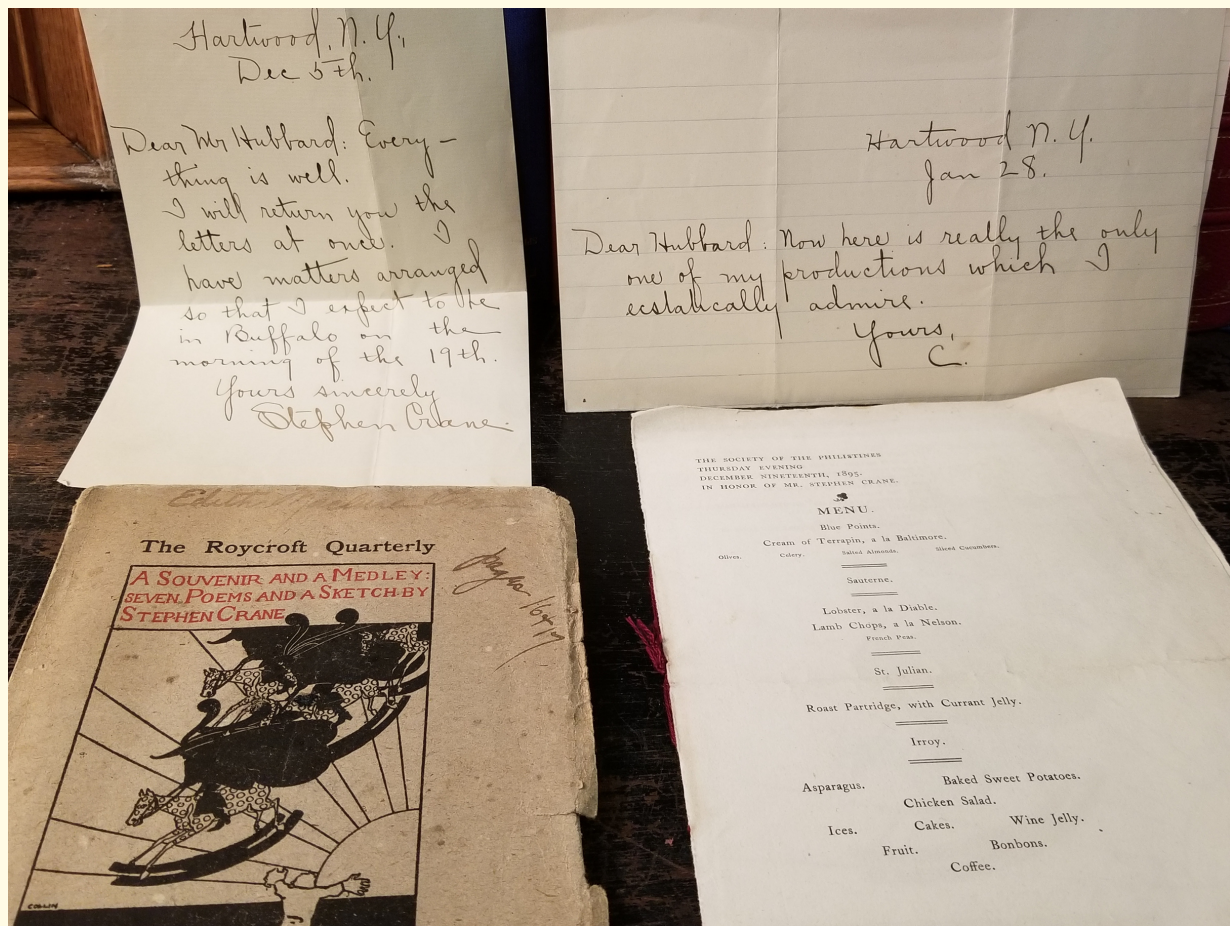 Hartwood, N. Y.,
Dec 5th.
Dear Mr Hubbard: Every-
thing is well.
I will return you the
letters at once. I
have matters arranged
so that I expect to be
in Buffalo on the
morning of the 19th.
Yours sincerely
Stephen Crane.
Hartwood N. Y.
Jan 28.
Dear Hubbard: Now here is really the only
one of my productions which I
ecstatically admire.
Yours,
C.
The Roycroft Quarterly
A SOUVENIR AND A MEDLEY:
SEVEN POEMS AND A SKETCH BY
STEPHEN CRANE
pages 16 & 17
THE SOCIETY OF THE PHILISTINES
THURSDAY EVENING
DECEMBER NINETEENTH, 1895.
IN HONOR OF MR. STEPHEN CRANE.
MENU.
Blue Points.
Cream of Terrapin, a la Baltimore.
Olives. Celery. Salted Almonds. Sliced Cucumbers.
Sauterne.
Lobster, a la Diable.
Lamb Chops, a la Nelson.
French Peas.
St. Julian.
Roast Partridge, with Currant Jelly.
Irroy.
Asparagus. Baked Sweet Potatoes.
Chicken Salad.
Ices. Cakes. Wine Jelly.
Fruit. Bonbons.
Coffee.